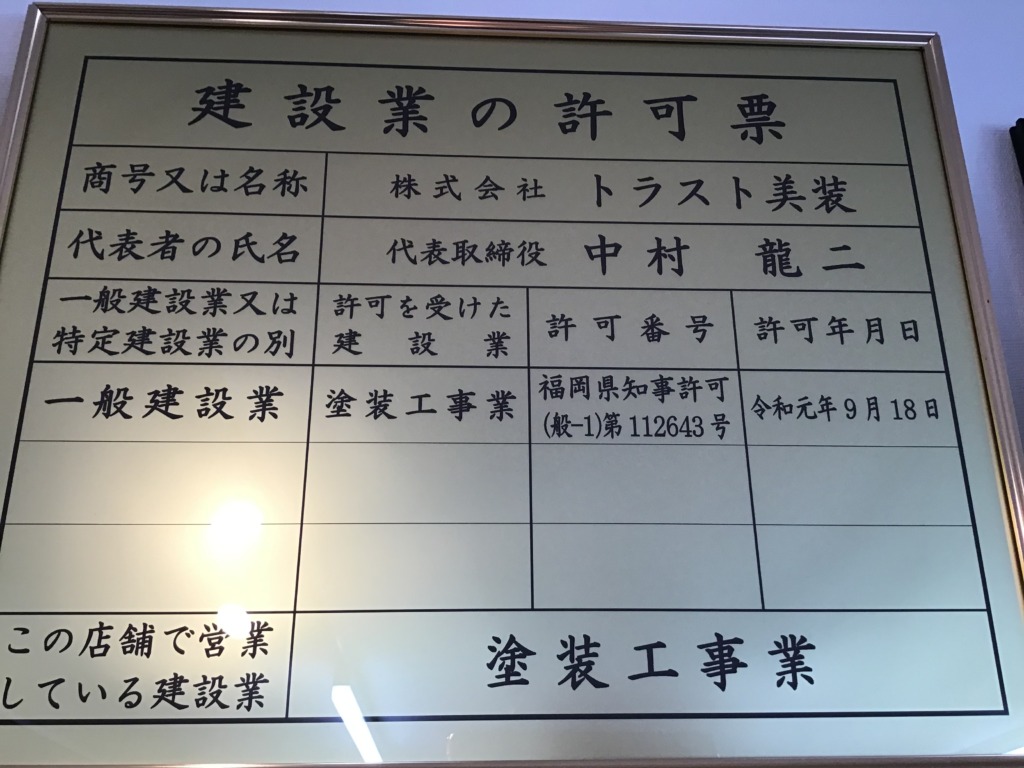 建設業の許可票
商号又は名称 株式会社 トラスト美装
代表者の氏名 代表取締役 中村 龍二
一般建設業又は
特定建設業の別
許可を受けた
建設業
許可番号
許可年月日
一般建設業
塗装工事業
福岡県知事許可
(般-1)第112643号
令和元年9月18日
この店舗で営業
している建設業
塗装工事業